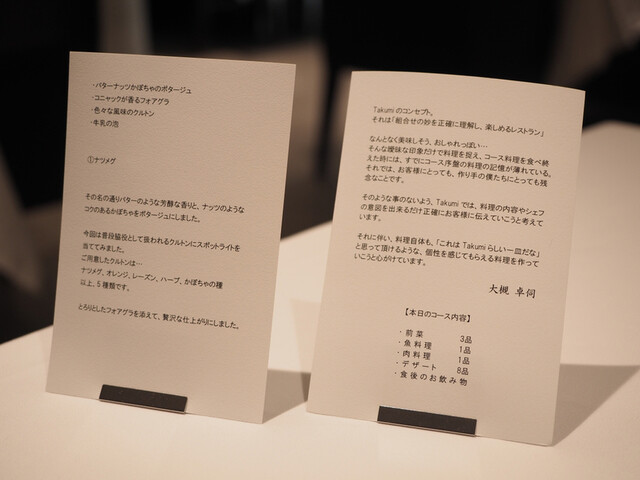 ・バターナッツかぼちゃのポタージュ
・コニャックが香るフォアグラ
・色々な風味のクルトン
・牛乳の泡
①ナツメグ
その名の通りバターのような芳醇な香りと、ナッツのような
コクのあるかぼちゃをポタージュにしました。
今回は普段脇役として扱われるクルトンにスポットライトを
当ててみました。
ご用意したクルトンは…
ナツメグ、オレンジ、レーズン、ハーブ、かぼちゃの種
以上、5種類です。
とろりとしたフォアグラを添えて、贅沢な仕上がりにしました。
Takumiのコンセプト。
それは「組合せの妙を正確に理解し、楽しめるレストラン」
なんとなく美味しそう、おしゃれっぽい…
そんな曖昧な印象だけで料理を捉え、コース料理を食べ終
えた時には、すでにコース序盤の料理の記憶が薄れている。
それでは、お客様にとっても、作り手の僕たちにとっても残
念なことです。
そのような事のないよう、Takumiでは、料理の内容やシェフ
の意図を出来るだけ正確にお客様に伝えていこうと考えて
います。
それに伴い、料理自体も、「これはTakumiらしい一皿だな」
と思って頂けるような、個性を感じてもらえる料理を作って
いこうと心がけています。
大槻 卓伺
【本日のコース内容】
・前菜 3品
・魚料理 1品
・肉料理 1品
・デザート 8品
・食後のお飲み物